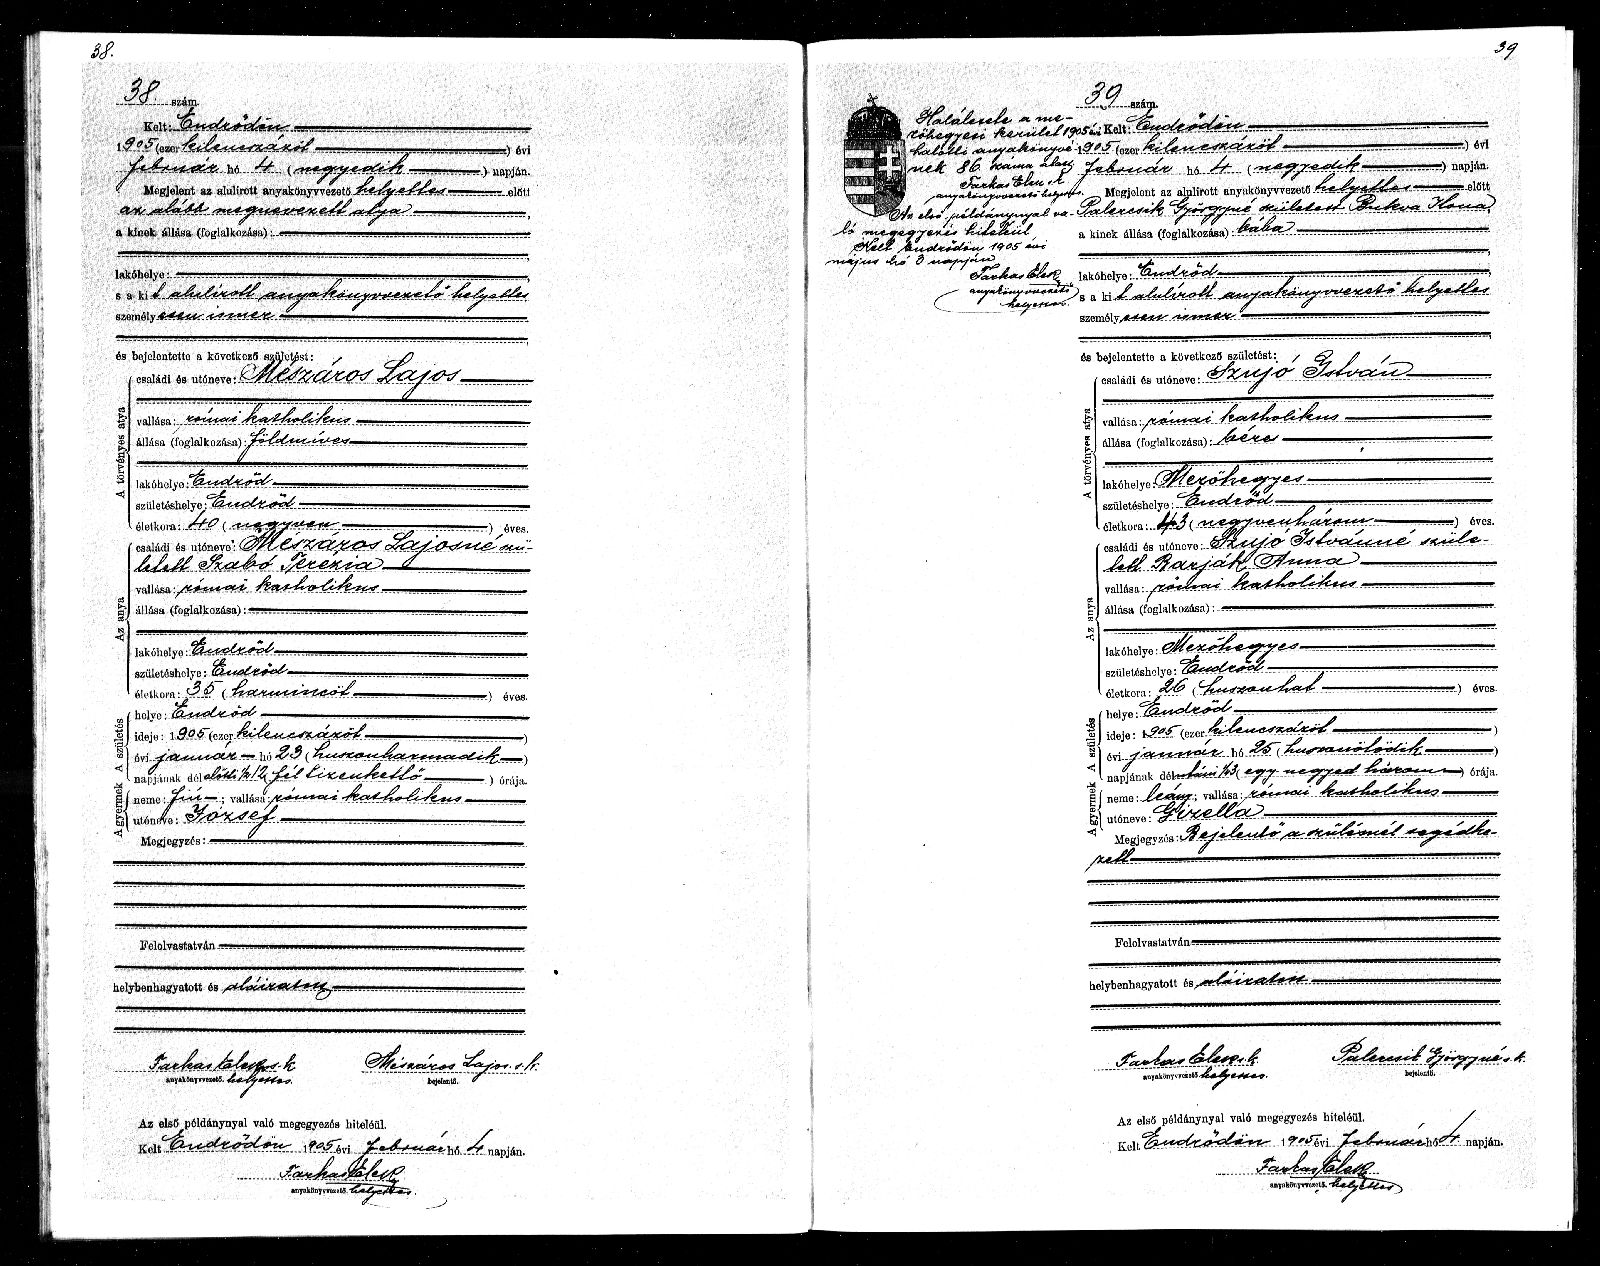 38.
38. szám.
Kelt: Endrődön
1905 (ezer kilenczszázöt) évi
február hó 4 (negyedik) napján.
Megjelent az alulirott anyakönyvvezető helyettes előtt
az alább megnevezett atya
a kinek állása (foglalkozása):
lakóhelye:
s a kit alulírott anyakönyvvezető helyettes
személyesen ismer
és bejelentette a következő születést:
A törvényes atya
családi és utóneve: Mészáros Lajos
vallása: római katholikus
állása (foglalkozása): földmíves
lakóhelye: Endrőd
születéshelye: Endrőd
életkora: 40 (negyven) éves.
Az anya
családi és utóneve: Mészáros Lajosné szü-
letett Szabó Terézia
vallása: római katholikus
állása (foglalkozása):
lakóhelye: Endrőd
születéshelye: Endrőd
életkora: 35 (harminczöt) éves.
A születés
helye: Endrőd
ideje: 1905 (ezer kilenczszázöt)
évi január hó 23 (huszonharmadik)
napjának délelőtti ½12 (fél tizenkettő) órája.
A gyermek
neme: fiú; vallása: római katholikus
utóneve: József
Megjegyzés:
Felolvastatván
helybenhagyatott és aláiratott
Farkas Elek s. k.
anyakönyvvezető helyettes.
Mészáros Lajos s. k.
bejelentő.
Az első példánynyal való megegyezés hiteléül.
Kelt Endrődön 1905 évi február hó 4 napján.
Farkas Elek
anyakönyvvezető helyettes
39
Halálesete a me-
zőhegyesi kerület 1905 évi
halotti anyakönyvé-
nek 86. száma alatt
Farkas Elek
anyakönyvvezető helyettes.
Az első példánynyal va-
ló megegyezés hiteléül
Kelt Endrődön 1905 évi
május hó 3 napján
Farkas Elek
anyakönyvvezető
helyettes.
39 szám.
Kelt: Endrődön
1905 (ezer kilenczszázöt) évi
február hó 4 (negyedik) napján.
Megjelent az alulirott anyakönyvvezető helyettes előtt
Palercsik Györgyné született Bukva Ilona,
a kinek állása (foglalkozása) bába
lakóhelye: Endrőd
s a kit alulírott anyakönyvvezető helyettes
személyesen ismer
és bejelentette a következő születést:
A törvényes atya
családi és utóneve: Szujó István
vallása: római katholikus
állása (foglalkozása): béres
lakóhelye: Mezőhegyes
születéshelye: Endrőd
életkora: 43 (negyvenhárom) éves.
Az anya
családi és utóneve: Szujó Istvánné szüle-
tett Barják Anna
vallása: római katholikus
állása (foglalkozása):
lakóhelye: Mezőhegyes
születéshelye: Endrőd
életkora: 26 (huszonhat) éves.
A születés
helye: Endrőd
ideje: 1905 (ezer kilenczszázöt)
évi január hó 25 (huszonötödik)
napjának délutáni ¼3 (egy negyed három) órája.
A gyermek
neme: leány; vallása: római katholikus
utóneve: Gizella
Megjegyzés: Bejelentő a szülésnél segédke-
zett
Felolvastatván
helybenhagyatott és aláiratott
Farkas Elek s. k.
anyakönyvvezető helyettes.
Palercsik Györgyné s. k.
bejelentő.
Az első példánynyal való megegyezés hiteléül.
Kelt Endrődön 1905 évi február hó 4. napján.
Farkas Elek
anyakönyvvezető. helyettes